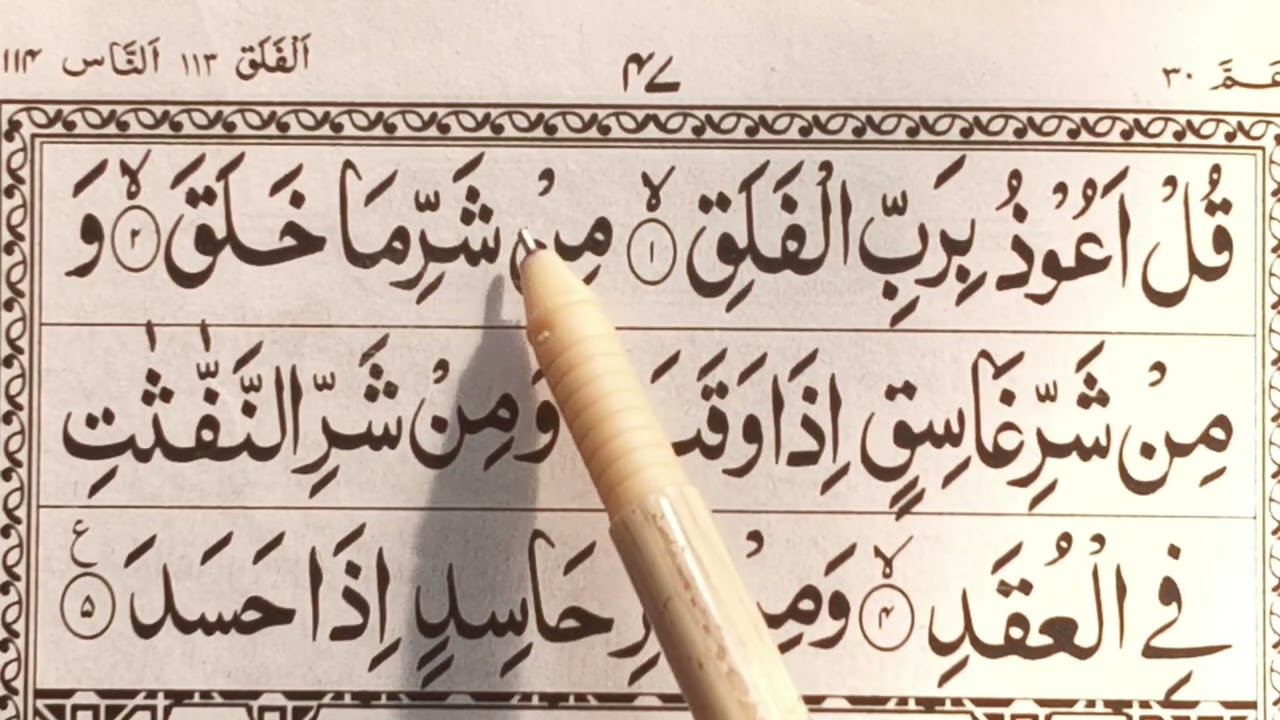 عَمَّ ٣٠ ٤٧ اَلْفَلَق ١١٣ اَلنَّاس ١١٤
قُلْ اَعُوْذُ بِرَبِّ الْفَلَقِ ۙ‏ ١ مِنْ شَرِّ مَا خَلَقَ ۙ‏ ٢ وَ
مِنْ شَرِّ غَاسِقٍ اِذَا وَقَبَ وَمِنْ شَرِّ النَّفّٰثٰتِ
فِي الْعُقَدِ ۙ‏ ٤ وَمِنْ حَاسِدٍ اِذَا حَسَدَ ٥ ع